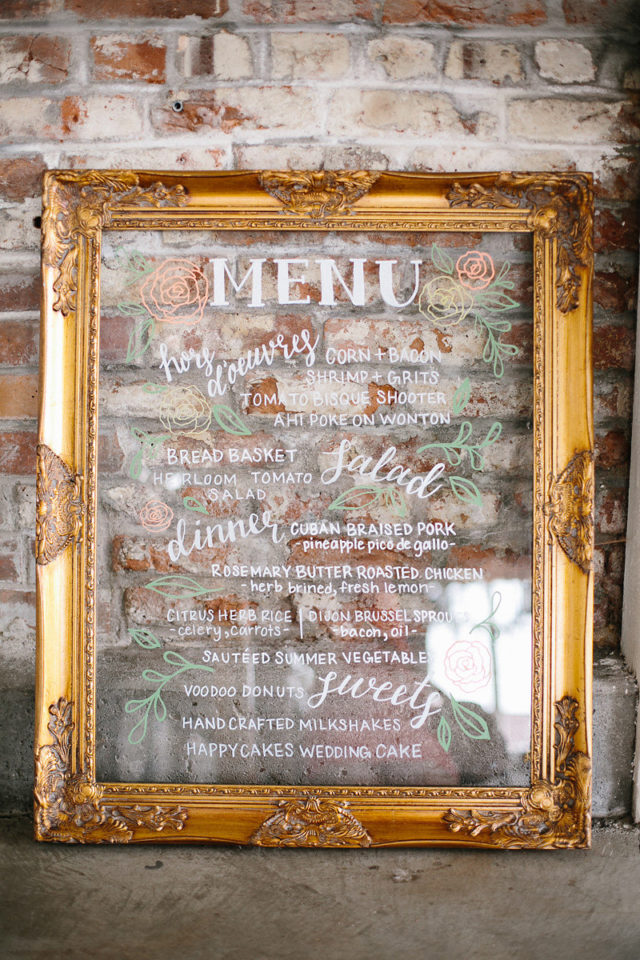 MENU
hors d'oeuvres CORN + BACON
SHRIMP + GRITS
TOMATO BISQUE SHOOTER
AHI POKE ON WONTON
BREAD BASKET salad
HEIRLOOM TOMATO
SALAD
dinner CUBAN BRAISED PORK
-pineapple pico de gallo-
ROSEMARY BUTTER ROASTED CHICKEN
-herb brined, fresh lemon-
CITRUS HERB RICE | DIJON BRUSSEL SPROUTS
-celery, carrots- | -bacon, oil-
SAUTÉED SUMMER VEGETABLES
VOODOO DONUTS sweets
HANDCRAFTED MILKSHAKES
HAPPYCAKES WEDDING CAKE